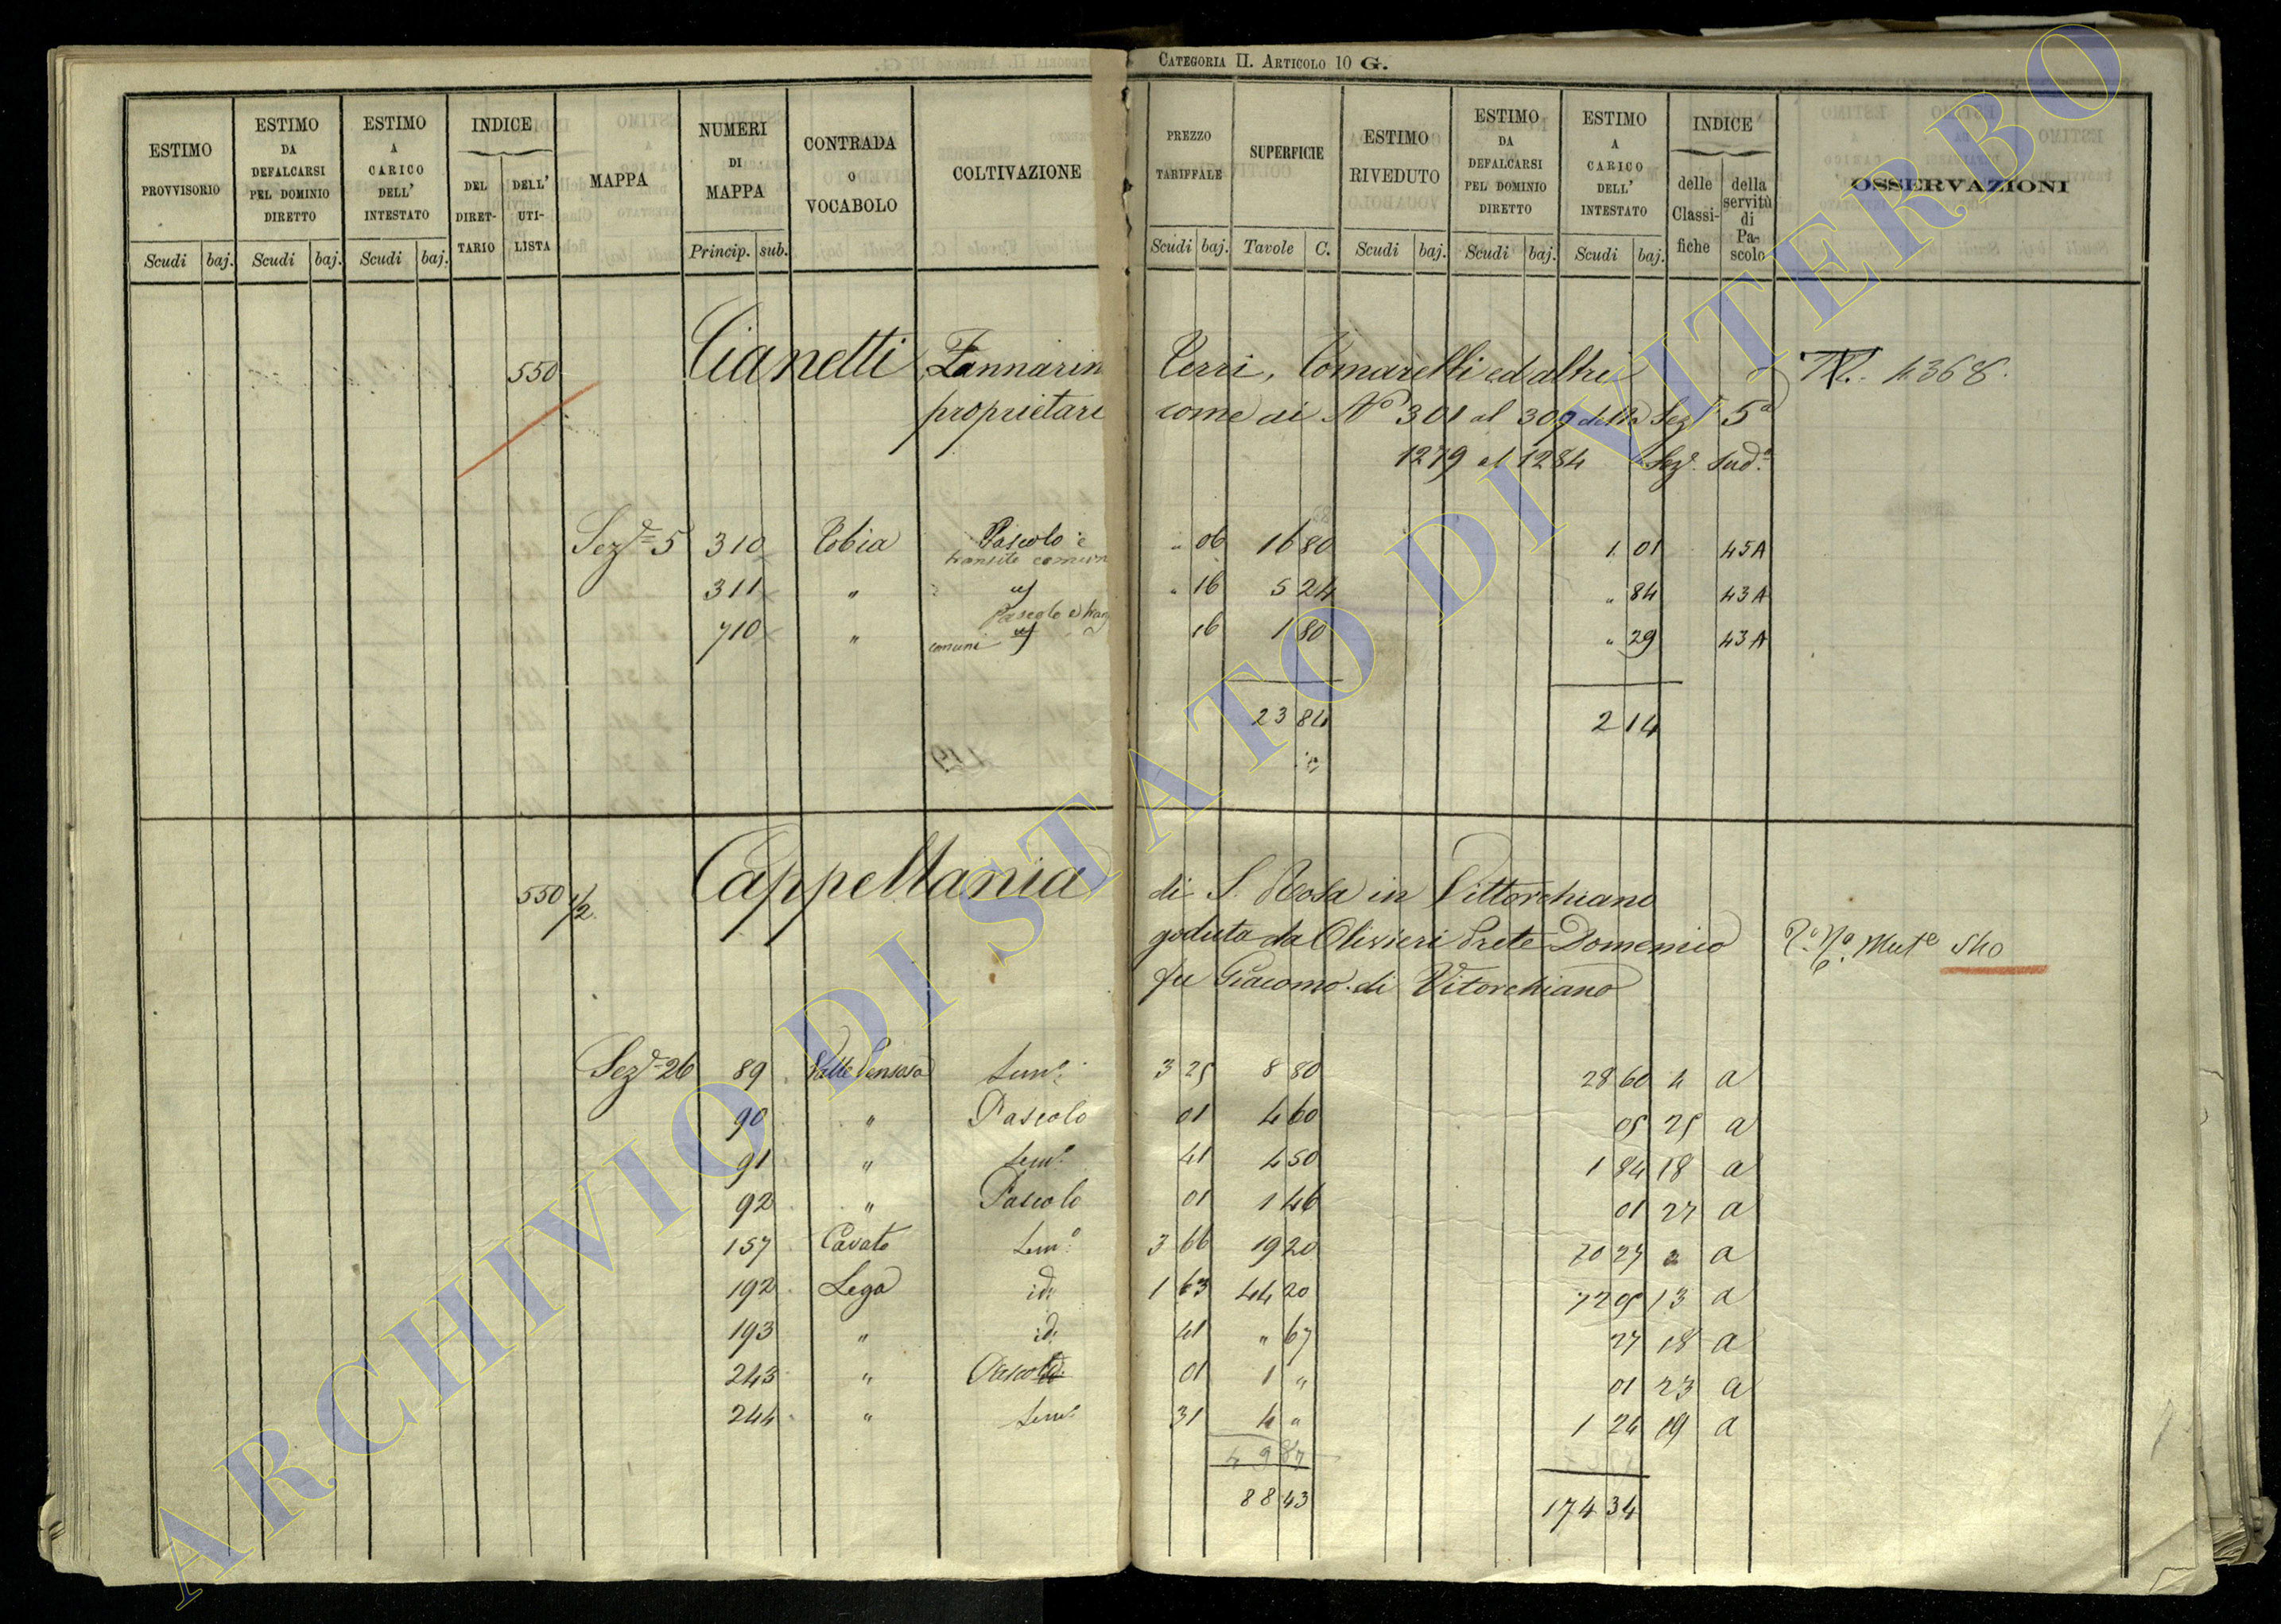 CATEGORIA II. ARTICOLO 10 G.
ESTIMO PROVVISORIO
ESTIMO DA DEFALCARSI PEL DOMINIO DIRETTO
ESTIMO A CARICO DELL' INTESTATO
INDICE
DEL DIRET-TARIO
DELL' UTI-LISTA
MAPPA
NUMERI DI MAPPA
CONTRADA O VOCABOLO
COLTIVAZIONE
PREZZO TARIFFALE
SUPERFICIE
ESTIMO RIVEDUTO
ESTIMO DA DEFALCARSI PEL DOMINIO DIRETTO
ESTIMO A CARICO DELL' INTESTATO
INDICE
delle Classi-fiche
della servitù di Pa-scolo
OSSERVAZIONI
Scudi baj. Scudi baj. Scudi baj. Princip. sub. Scudi baj. Tavole C. Scudi baj. Scudi baj. Scudi baj.
550 Cianetti Zannarin Perri, Tomarelli ed altri 4368.
proprietari come ai No 301 al 309 della Sez. 5a
1279 al 1284 Sez. sud.a
Sez.e 5 310 Tobia Pascolo e transito comun " 06 16 80 1 01 45A
311 " " " 16 5 24 " 84 43A
Pascolo e
710 " comuni 16 1 80 " 29 43A
23 84 2 14
550 1/2 Cappellania di S. Rosa in Vittorchiano
goduta da Olivieri Prete Domenico Mut.e 540
fu Giacomo di Vitorchiano
Sez.e 26 89 Valle Pensosa Sem.o 3 25 8 80 28 60 4 a
90 " Pascolo 01 4 60 05 25 a
91 " Sem.o 41 4 50 1 84 18 a
92 " Pascolo 01 1 46 01 27 a
157 Cavato Sem.o 3 66 19 20 70 27 2 a
192 Lega id. 1 63 44 20 72 05 13 a
193 " id. 41 " 67 27 18 a
243 " Pascolo 01 1 " 01 23 a
244 " Sem.o 31 4 " 1 24 19 a
4 9 87
88 43 174 34
ARCHIVIO DI STATO DI VITERBO